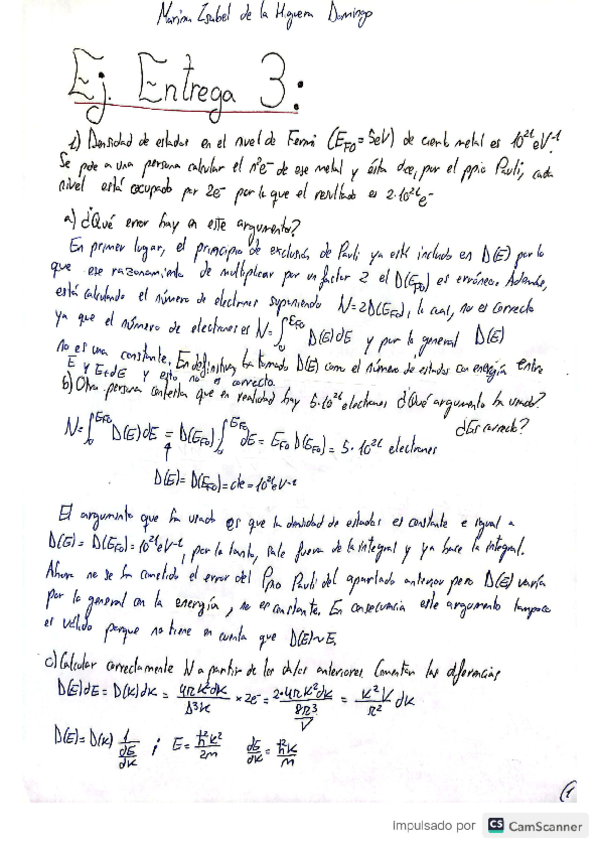 Marina Isabel de la Higuera Domingo
Ej. Entrega 3:
1) Densidad de estados en el nivel de Fermi (E_F0 = 5eV) de cierto metal es 10^26 eV^-1.
Se pide a una persona calcular el nº e^- de ese metal y ésta dice, por el ppio Pauli, cada
nivel está ocupado por 2e^- por lo que el resultado es 2·10^26 e^-
a) ¿Qué error hay en este argumento?
En primer lugar, el principio de exclusión de Pauli ya está incluido en D(E) por lo
que ese razonamiento de multiplicar por un factor 2 el D(E_F0) es erróneo. Además,
está calculando el número de electrones suponiendo N=2D(E_F0), lo cual, no es correcto
ya que el número de electrones es N=∫_0^E_F0 D(E)dE y por lo general D(E)
no es una constante. En definitiva, ha tomado D(E) como el número de estados con energía entre
E y E+dE y esto no es correcto.
b) Otra persona contesta que en realidad hay 5·10^26 electrones ¿Qué argumento ha usado?
¿Es correcto?
N=∫_0^E_F0 D(E)dE = D(E_F0)∫_0^E_F0 dE = E_F0 D(E_F0) = 5·10^26 electrones
D(E)=D(E_F0)=cte=10^26 eV^-1
El argumento que ha usado es que la densidad de estados es constante e igual a
D(E)=D(E_F0)=10^26 eV^-1, por lo tanto, sale fuera de la integral y ya hace la integral.
Ahora no se ha cometido el error del Ppio Pauli del apartado anterior pero D(E) varía
por lo general con la energía, no es constante. En consecuencia este argumento tampoco
es válido porque no tiene en cuenta que D(E)~E.
c) Calcular correctamente N a partir de los datos anteriores. Comentar las diferencias
D(E)dE = D(k)dk = 4πk²dk/Δ³k × 2e^- = 2·4πk²dk/(8π³/V) = k²V/π² dk
D(E)=D(k) 1/(dE/dk) ; E = ħ²k²/2m dE/dk = ħ²k/m
(1
Impulsado por CS CamScanner